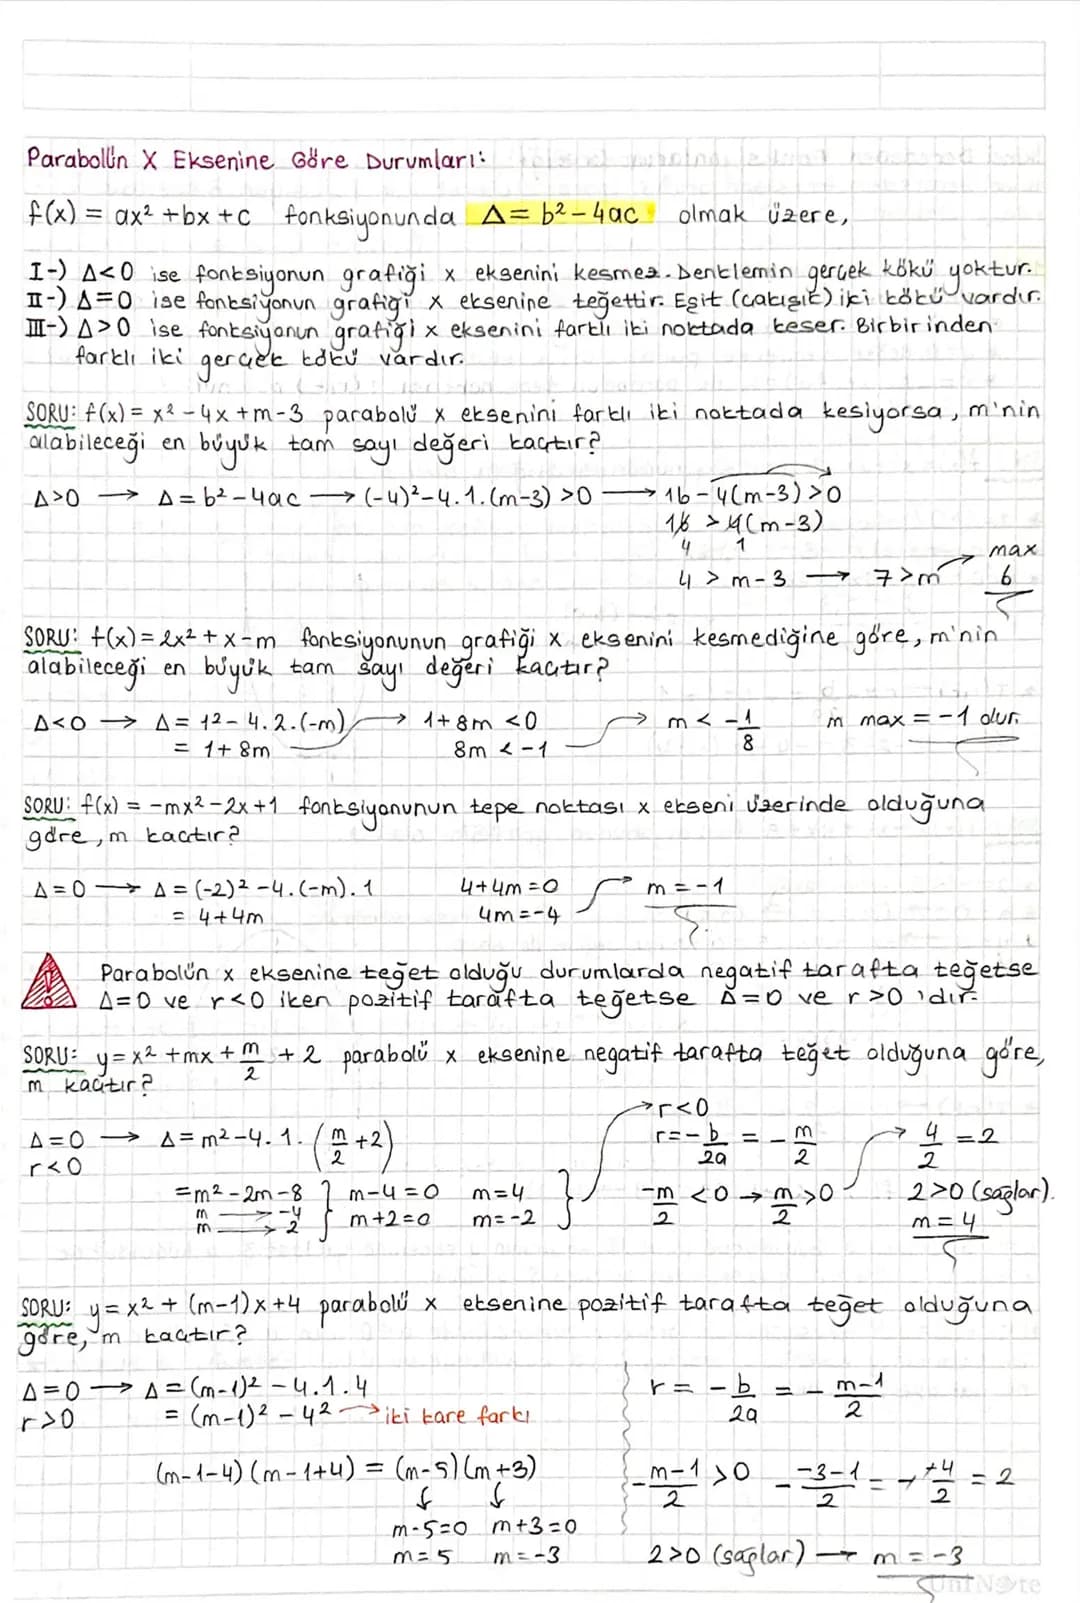 Parabolün X Eksenine Göre Durumları:
f(x) = ax² + bx + c fonksiyonunda Δ = b² - 4ac olmak üzere,
I-) Δ<0 ise fonksiyonun grafiği x eksenini kesmez. Denklemin gerçek kökü yoktur.
II-) Δ=0 ise fonksiyonun grafiği x eksenine teğettir. Eşit (çakışık) iki kökü vardır.
III-) Δ>0 ise fonksiyonun grafiği x eksenini farklı iki noktada keser. Birbirinden
farklı iki gerçek kökü vardır.
SORU: f(x) = x² - 4x + m - 3 parabolü x eksenini farklı iki noktada kesiyorsa, m'nin
alabileceği en büyük tam sayı değeri kaçtır?
Δ>0 → Δ = b² - 4ac → (-4)² - 4.1.(m-3) > 0 → 16 - 4(m-3) > 0
16 > 4(m-3)
4 1
4 > m - 3 → 7 > m → max 6
SORU: f(x) = 2x² + x - m fonksiyonunun grafiği x eksenini kesmediğine göre, m'nin
alabileceği en büyük tam sayı değeri kaçtır?
Δ<0 → Δ = 1² - 4.2.(-m) → 1 + 8m < 0 → m < -1/8 m max = -1 olur.
= 1 + 8m 8m < -1
SORU: f(x) = -mx² - 2x + 1 fonksiyonunun tepe noktası x ekseni üzerinde olduğuna
göre, m kaçtır?
Δ = 0 → Δ = (-2)² - 4.(-m).1 4 + 4m = 0 → m = -1
= 4 + 4m 4m = -4
! Parabolün x eksenine teğet olduğu durumlarda negatif tarafta teğetse
Δ=0 ve r<0 iken pozitif tarafta teğetse Δ=0 ve r>0 'dır.
SORU: y = x² + mx + m/2 + 2 parabolü x eksenine negatif tarafta teğet olduğuna göre,
m kaçtır?
Δ = 0 → Δ = m² - 4.1.(m/2 + 2)
r<0
= m² - 2m - 8 } m - 4 = 0 m = 4 }
m → -4
m → 2 } m + 2 = 0 m = -2 }
→ r<0
r = -b/2a = -m/2
-m/2 < 0 → m/2 > 0
→ 4/2 = 2
2>0 (sağlar).
m = 4
SORU: y = x² + (m-1)x + 4 parabolü x eksenine pozitif tarafta teğet olduğuna
göre, m kaçtır?
Δ = 0 → Δ = (m-1)² - 4.1.4
r>0 = (m-1)² - 4² → iki kare farkı
(m-1-4)(m-1+4) = (m-5)(m+3)
↓ ↓
m-5=0 m+3=0
m = 5 m = -3
r = -b/2a = -m-1/2
-m-1/2 > 0 -\-3-1/2 = → +4/2 = 2
2>0 (sağlar) → m = -3
UniNote